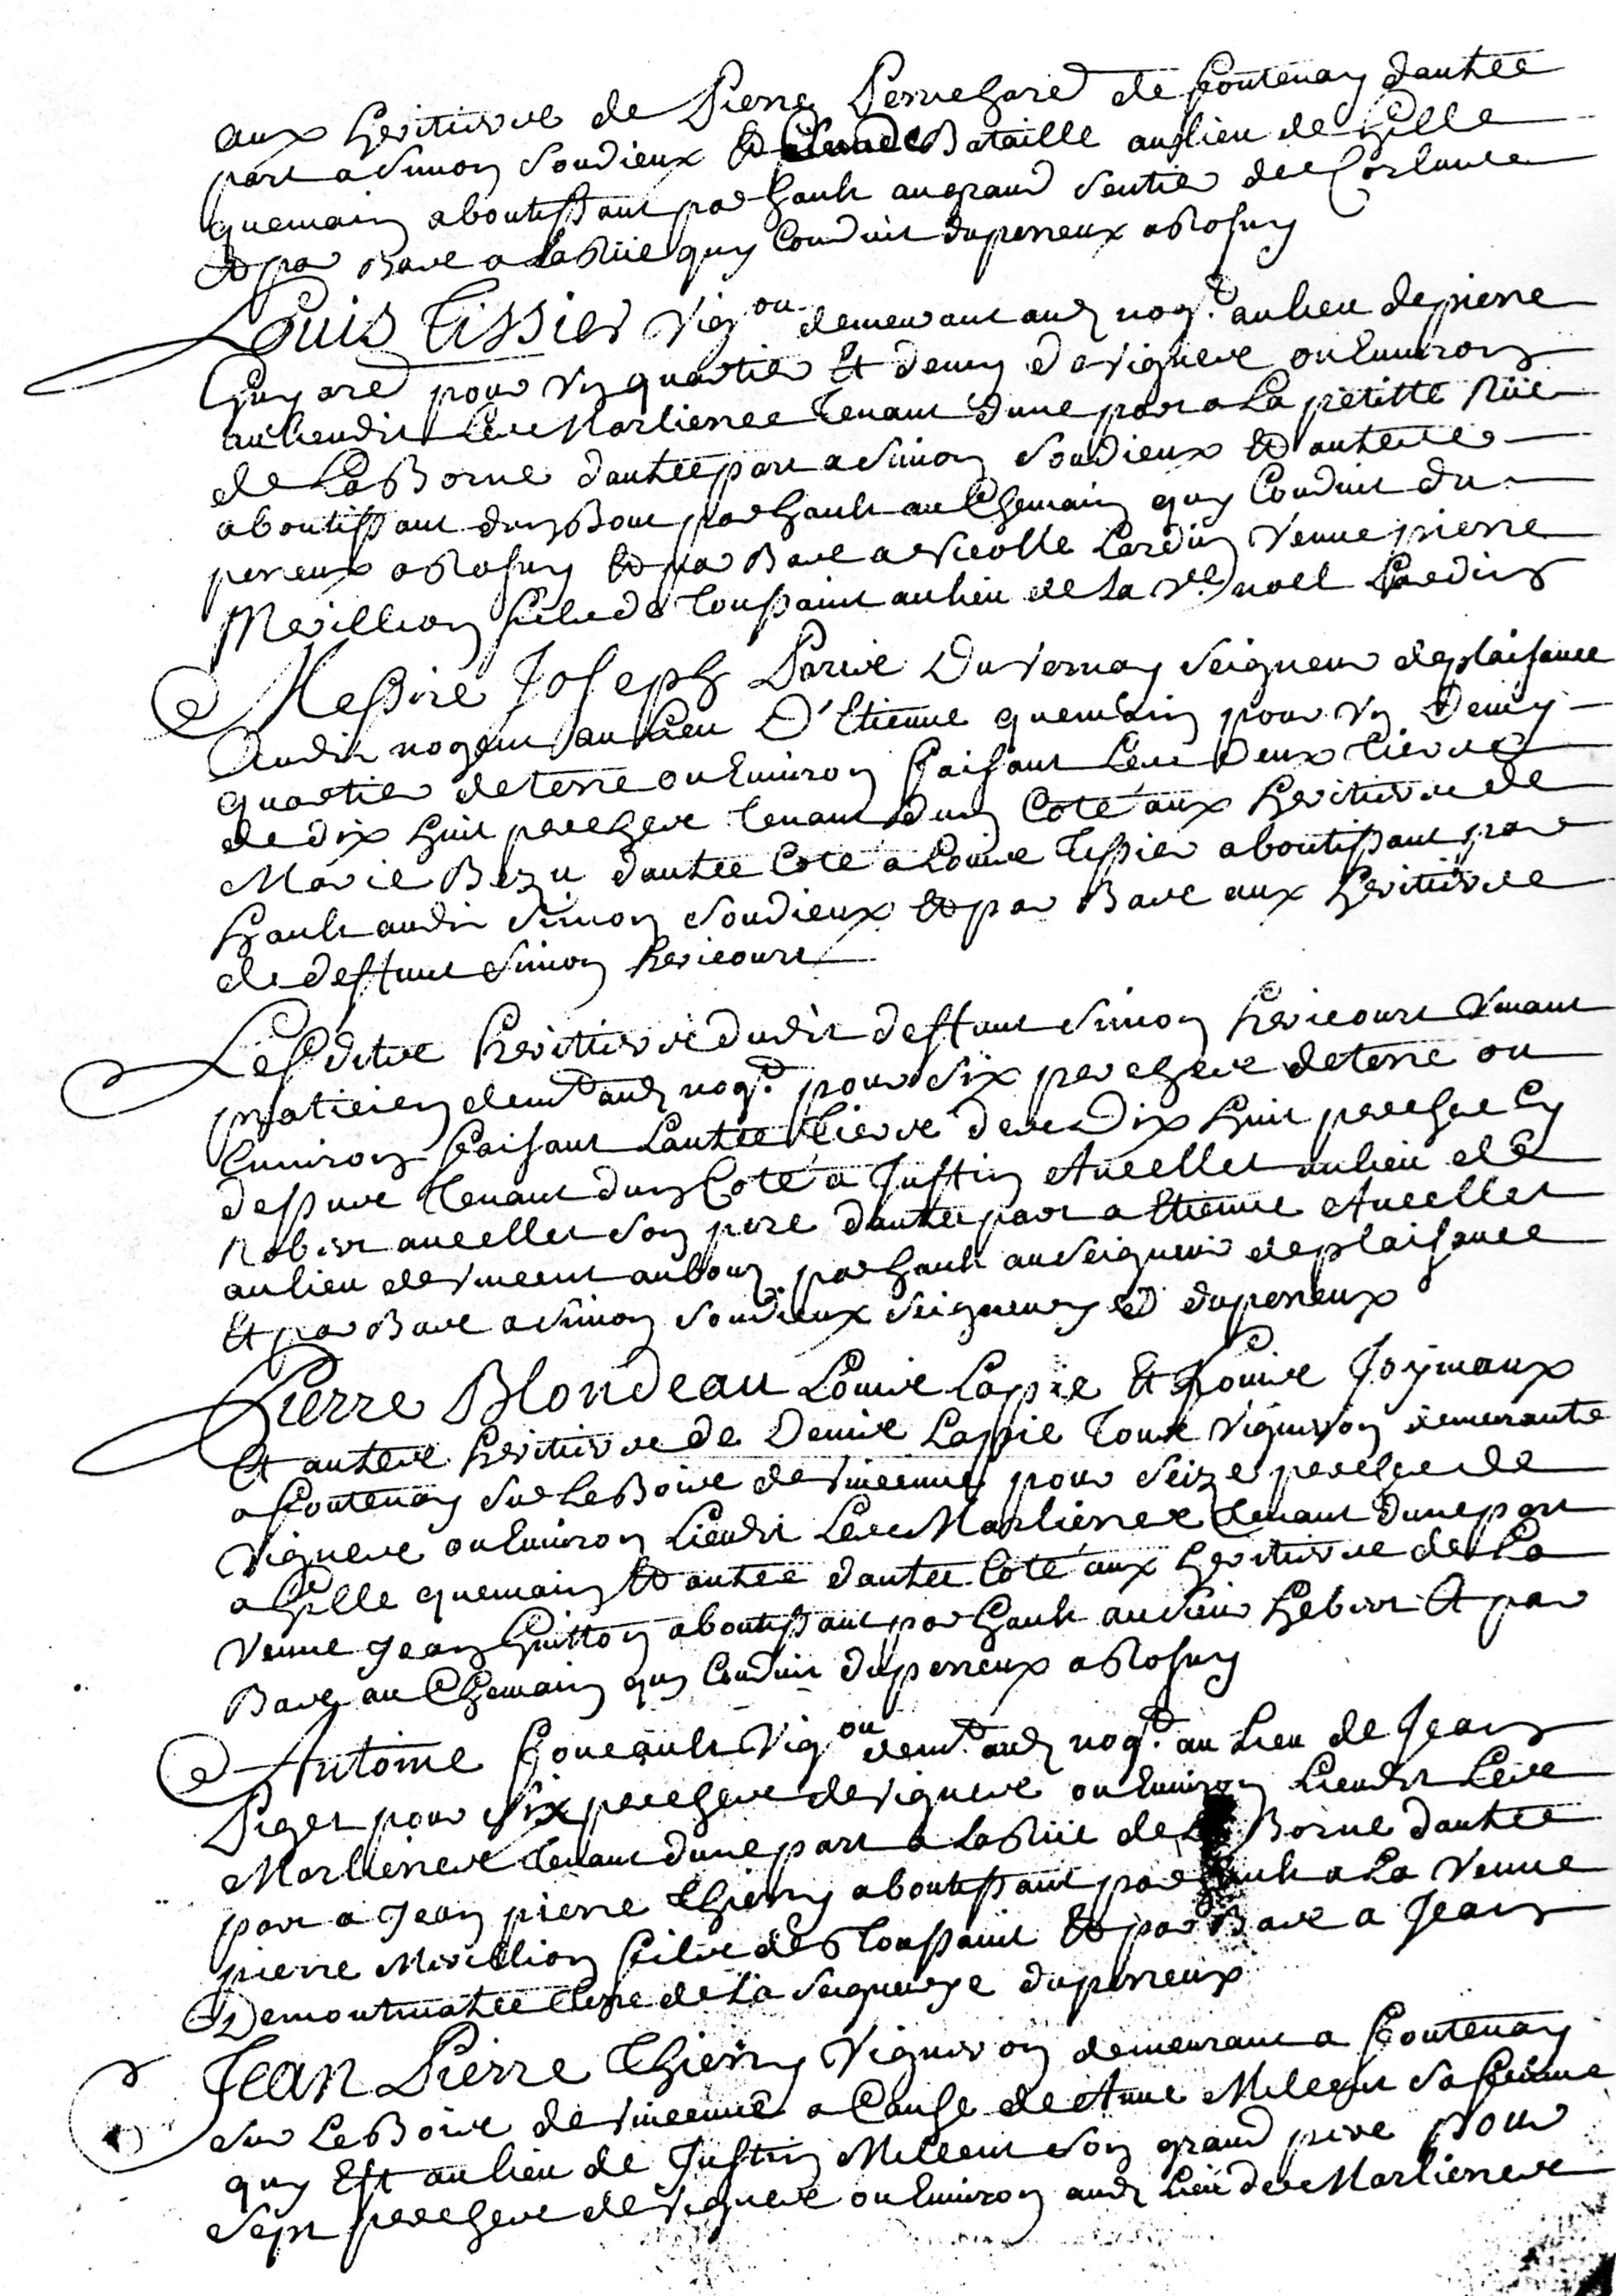 aux heritiers de Pierre Perrechard de fontenay dautre
part a Simon Soudieux Et Bataille au lieu de Gille
quemain aboutissant par hault au grand Sentier des
Et par Bas a La Rüe quy Conduit du perreux a Rosny
Louis Tissier Vig.on demeurant aud nog.t au lieu de pierre
Guyard pour Vn quartier Et demy de Vignes ou Environ
au lieudit Les Marlieres Tenant dune part a La petitte Rüe
de La Borne dautre part a Simon Soudieux Et autres
aboutissant dun Bout par hault au Chemain quy Conduit du
perreux a Rosny Et par Bas a Nicolle Lardin Veuve pierre
Mevillion fils de Toussaint au lieu de la V.e noel Lardin
Messire Joseph Paris Duvernay Seigneur de plaisance
Audit nogent au lieu D'Etienne quemain pour Vn Demy
quartier de terre ou Environ faisant Les Deux tiers
de dix huit perches tenant dun Coté aux heritiers de
Marie Bezu dautre Coté a Louis Tessier aboutissant par
hault audit Simon Soudieux Et par Bas aux heritiers
de deffunt Simon hericourt
Lesdits heritiers dudit deffunt Simon hericourt Vivant
praticien dem.t aud nog.t pour Six perches de terre ou
Environ faisant Lautre tiers des Dix huit perches Cy
dessus tenant dun Coté a Justin Ancellet au lieu de
Robert ancellet Son pere dautre part a Etienne Ancellet
au lieu de Vincent aubouy par hault au Seigneur de plaisance
Et par Bas a Simon Soudieux Seigneury d duperreux
Pierre Blondeau Louis Lapie Et Louis Joymaux
Et autres heritiers de Denis Lapie Tous Vigneron demeurants
a fontenay Sur Le Bois de Vincennes pour Seize perches de
Vignes ou Environ Lieudit Les Marlieres Tenant dune part
a Gille quemain Et autre dautre Coté aux heritiers de La
Veuve Jean Guitton aboutissant par hault au Sieur hebert Et par
Bas au Chemain quy Conduit du perreux a Rosny
Antoine foucault Vig.on dem.t aud nog.t au Lieu de Jean
Piget pour Six perches de Vignes ou Environ Lieudit Les
Marlieres tenant dune part a La Rüe de La Borne dautre
part a Jean pierre Thierry aboutissant par hault a La Veuve
pierre Mevillion fils de Toussaint Et par Bas a Jean
Demontmatre terre de La Seigneurye du perreux
Jean Pierre Thierry Vigneron demeurant a fontenay
Sur Le Bois de Vincennes a Cause de Anne Milcent Sa femme
quy Est au lieu de Justin Millent Son grand pere pour
Sept perches de Vignes ou Environ aud Lieu des Marlieres